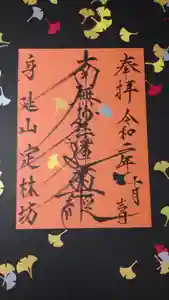 奉拝
令和二年十月
南無妙法蓮華経
身延山定林坊